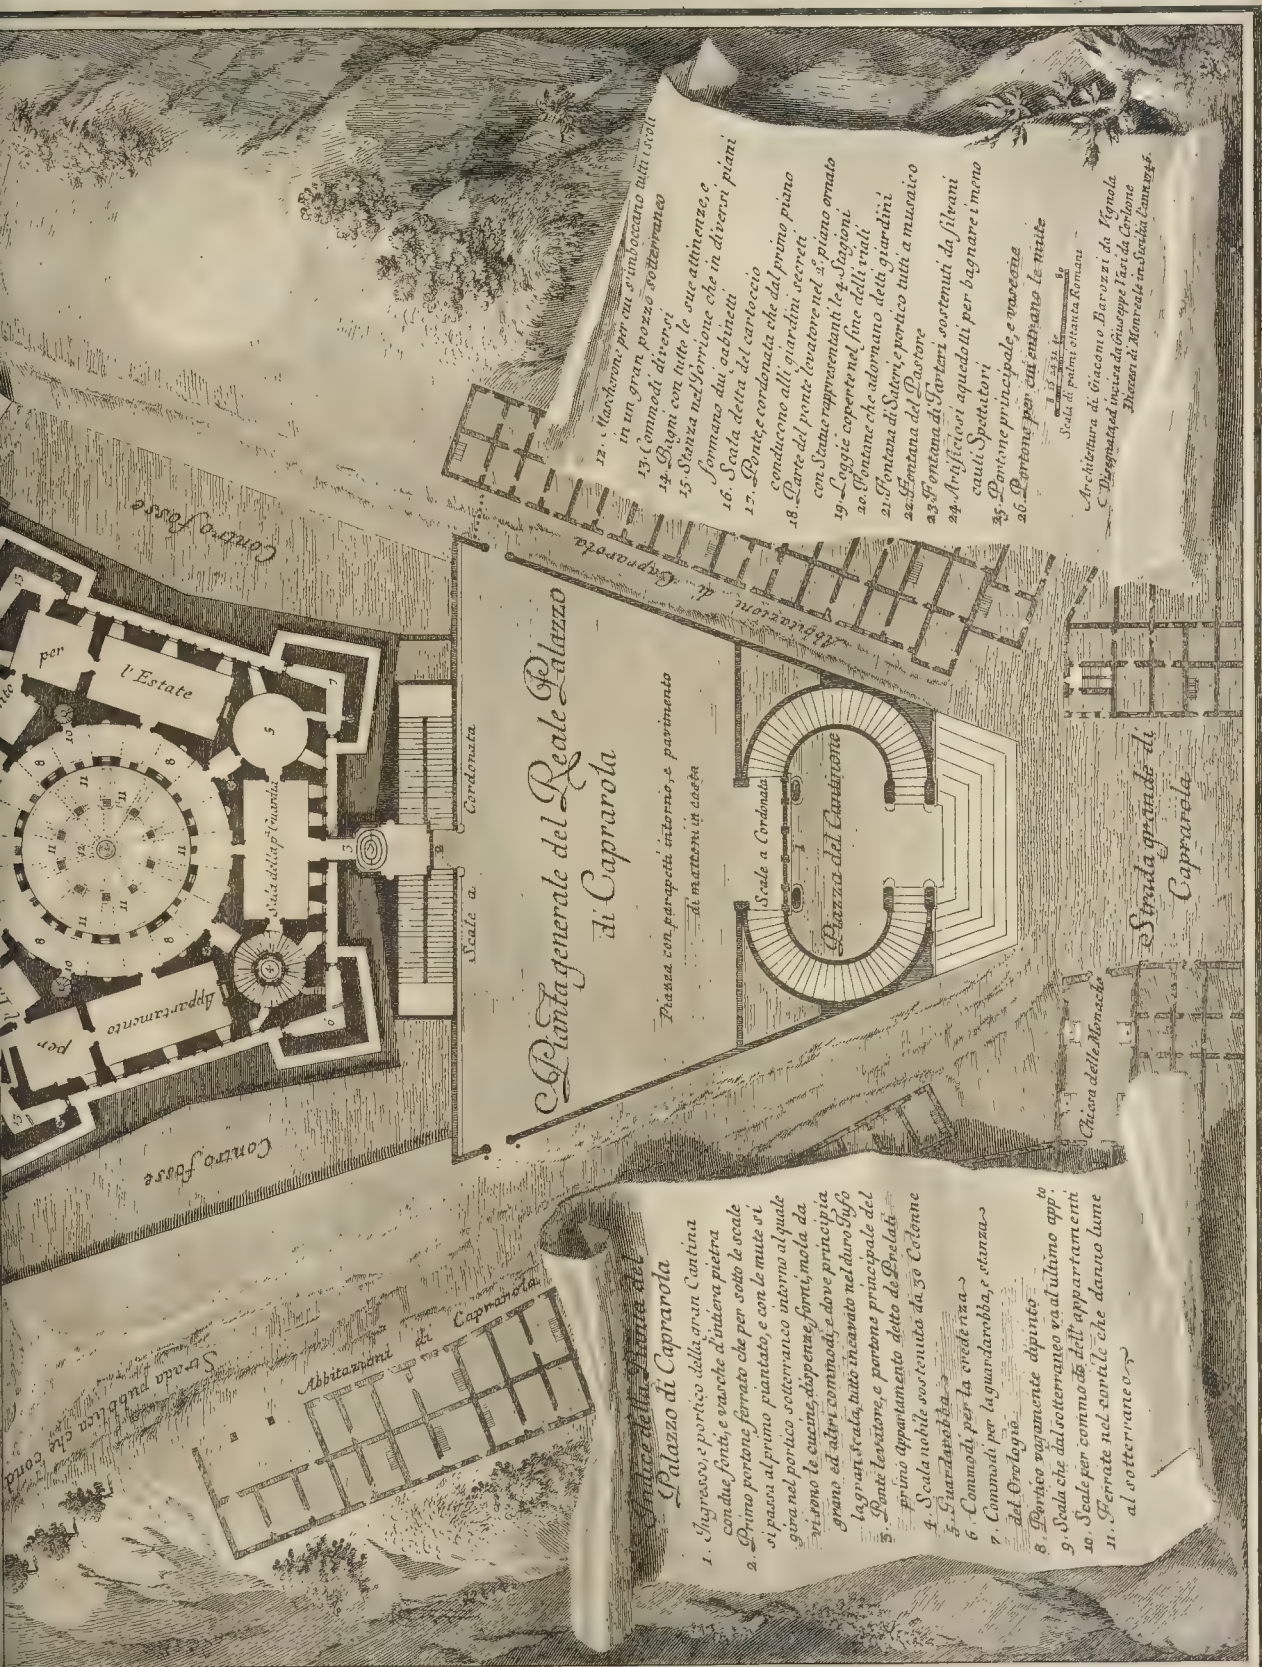 Contro fosse
Contro fosse
per
l'Estate
per
Appartamento
Sala della pa. Guardia
Scale a
Cordonata
Pianta generale del Reale Palazzo
di Caprarola
Piazza con parapetti intorno, e pavimento
di mattoni in costa
Scale a Cordonata
Piazza del Cantinone
Strada grande di
Caprarola
Chiesa delle Monache
Abbitazioni di Caprarola
Abbitazioni di Caprarola
Strada pubblica che cond
Indice della Pianta del
Palazzo di Caprarola
1. Ingresso, e portico della gran Cantina
con due fonti, e vasche d'intiera pietra
2. Primo portone ferrato che per sotto le scale
si passa al primo piantato, e con le mute si
gira nel portico sotterraneo intorno al quale
vi sono le cucine, dispenze, forni, mola da
grano ed altri commodi, e dove principia
la gran scala, tutto incavato nel duro Tufo
3. Ponte levatore, e portone principale del
primo appartamento detto de Prelati
4. Scala nobile sostenuta da 30 Colonne
5. Guardarobba
6. Commodi per la credenza
7. Commodi per la guardarobba, e stanza
del Orologio
8. Portico vagamente dipinto
9. Scala che dal sotterraneo va al ultimo app.to
10. Scale per commodo dell'appartamenti
11. Ferrate nel cortile che danno lume
al sotterraneo
12. Mascherone per cui s'imboccano tutti i scoli
in un gran pozzo sotterraneo
13. Commodi diversi
14. Bagni con tutte le sue attinenze, e
15. Stanza nel Torrione che in diversi piani
formano dui gabinetti
16. Scala detta del cartoccio
17. Ponte, e cordonata che dal primo piano
conducono alli giardini secreti
18. Parte del ponte levatore nel 2º. piano ornato
con Statue rappresentanti le 4 Stagioni
19. Loggie coperte nel fine delli viali
20. Fontane che adornano detti giardini
21. Fontana di Satiri, e portico tutti a musaico
22. Fontana del Pastore
23. Fontana di Tarteri sostenuti da Silvani
24. Artificiosi aquedotti per bagnare i meno
cauti Spettatori
25. Portone principale, e vascone
26. Portone per cui entrano le mute
Scala di palmi ottanta Romani
Architettura di Giacomo Barozzi da Vignola
Disegnata, ed incisa da Giuseppe Vasi da Corleone